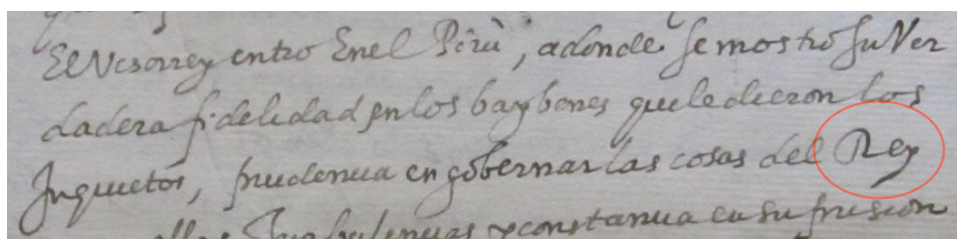 El Visorrey entro Enel Pirù, adonde se mostro su Ver
dadera fidelidad en los baybenes que le dieron los
Inquietos, prudencia en gobernar las cosas del Rey
ellas Turbulencias y constancia en su prision